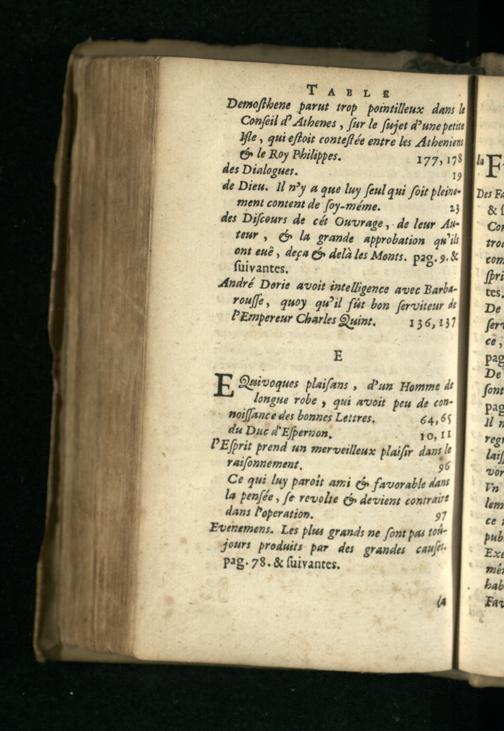 TABLE
Demosthene parut trop pointilleux dans le
Conseil d'Athenes, sur le sujet d'une petite
Isle, qui estoit contestée entre les Atheniens
& le Roy Philippes. 177, 178
des Dialogues. 19
de Dieu. Il n'y a que luy seul qui soit pleine-
ment content de soy-méme. 23
des Discours de cét Ouvrage, de leur Au-
teur, & la grande approbation qu'ils
ont euë, deça & delà les Monts. pag. 9. &
suivantes.
André Dorie avoit intelligence avec Barba-
rousse, quoy qu'il fût bon serviteur de
l'Empereur Charles Quint. 136, 137
E
EQuivoques plaisans, d'un Homme de
longue robe, qui avoit peu de con-
noissance des bonnes Lettres. 64, 65
du Duc d'Espernon. 10, 11
l'Esprit prend un merveilleux plaisir dans le
raisonnement. 96
Ce qui luy paroît ami & favorable dans
la pensée, se revolte & devient contraire
dans l'operation. 97
Evenemens. Les plus grands ne sont pas toû-
jours produits par des grandes causes.
pag. 78. & suivantes.
la
la F
Des Fa
& s
Co
tro
com
spri
tes.
De
ser
ce,
pag
De
sont
pag
Il n
regn
lais
vor
Un
lem
ce
pub
Exe
mé
hab
Fav